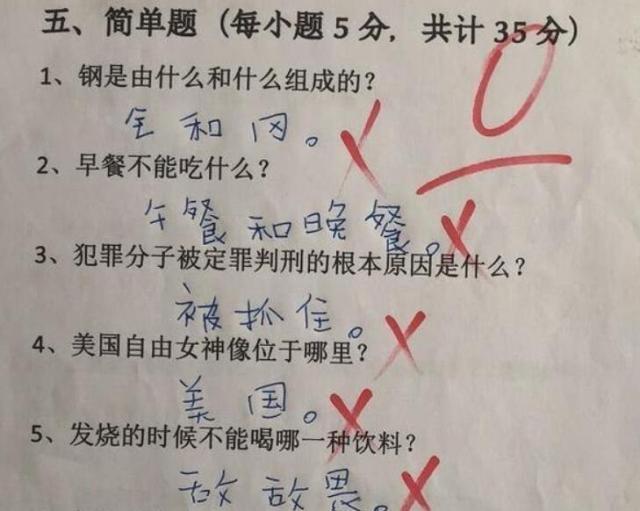 五、简单题（每小题5分，共计35分）
0
1、钢是由什么和什么组成的？
钅和冈。
2、早餐不能吃什么？
午餐和晚餐。
3、犯罪分子被定罪判刑的根本原因是什么？
被抓住。
4、美国自由女神像位于哪里？
美国。
5、发烧的时候不能喝哪一种饮料？
敌敌畏。